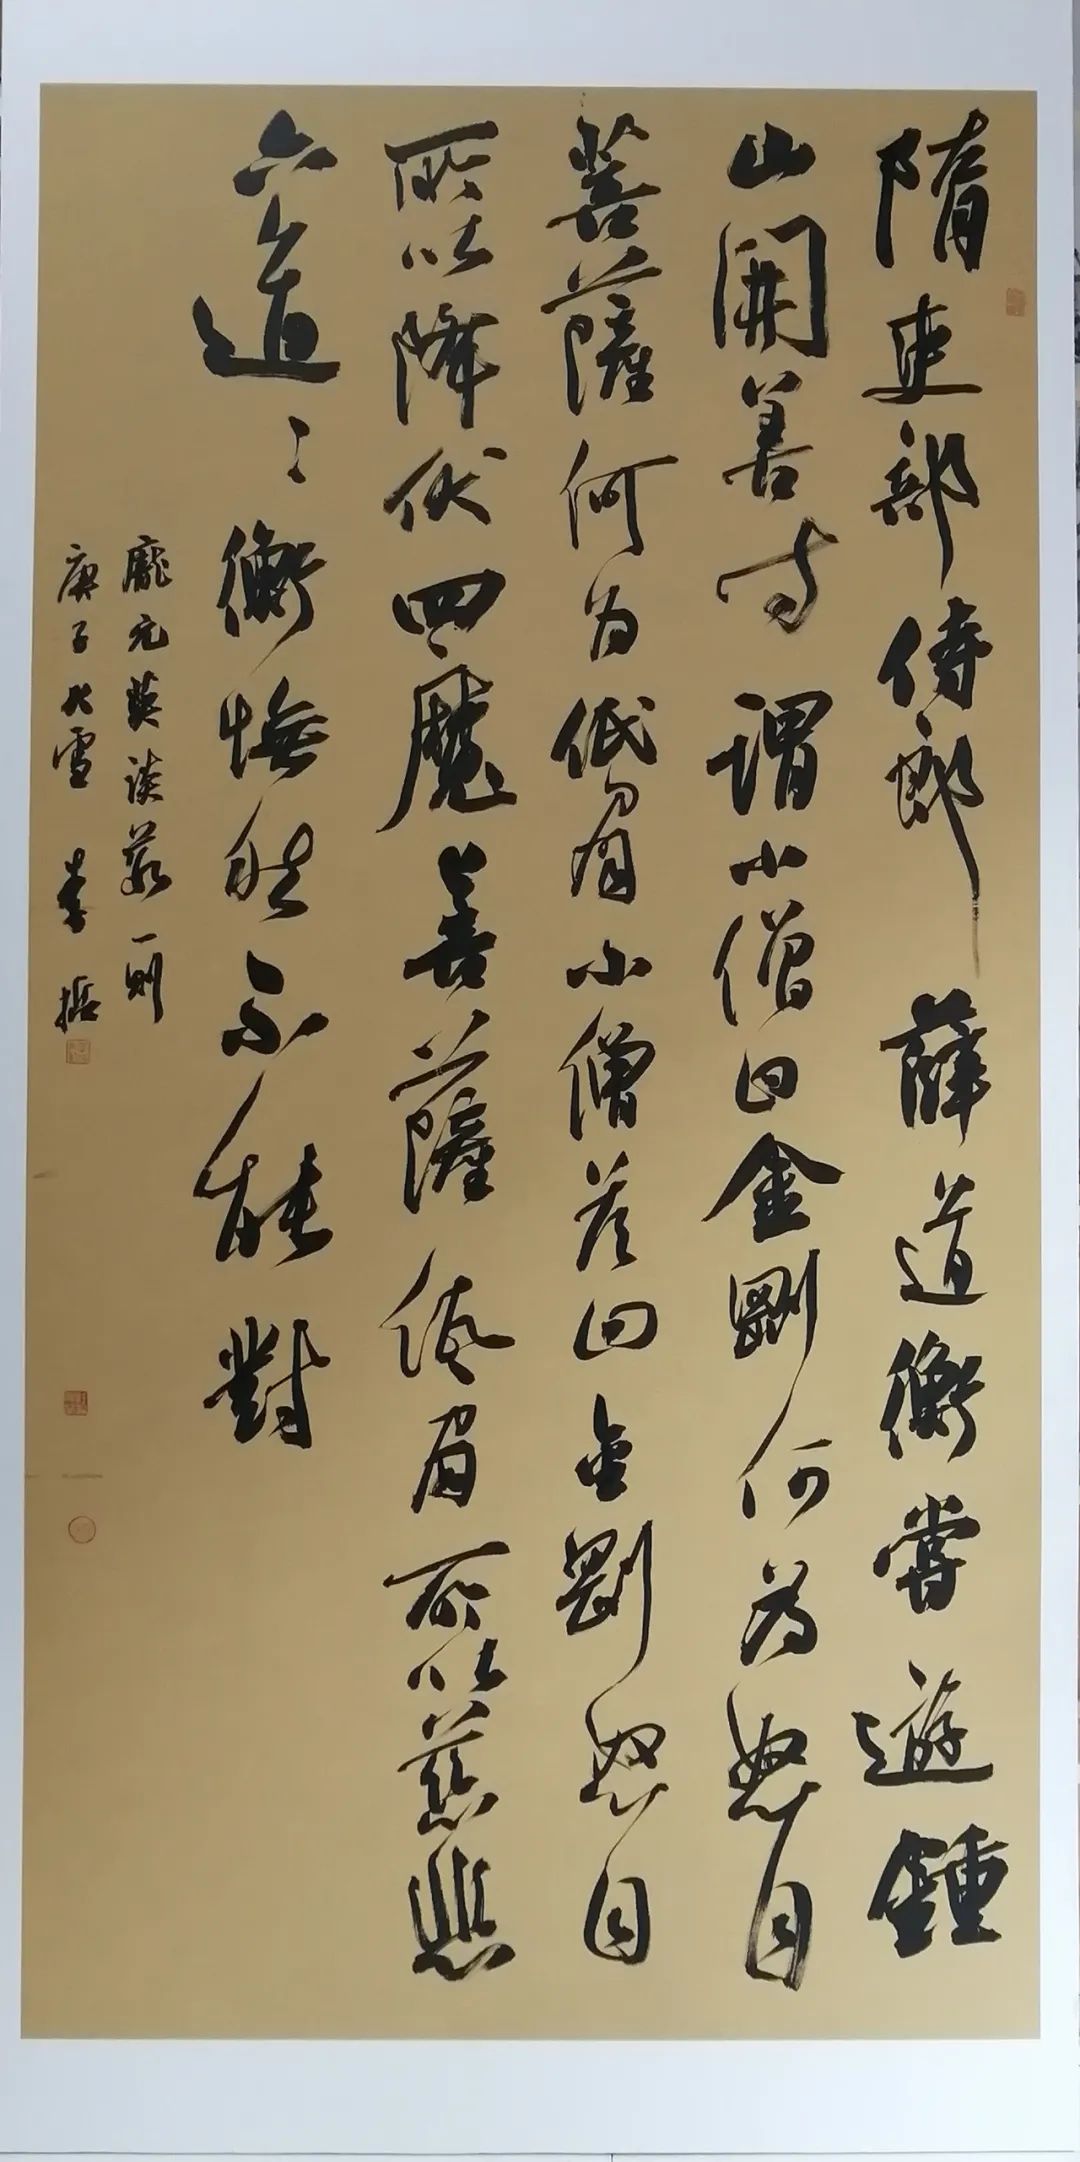 隋吏部侍郎薛道衡嘗遊鍾
山開善寺謂小僧曰金剛何為怒目
菩薩何为低眉小僧答曰金剛怒目
所以降伏四魔菩薩低眉所以慈悲
六道道衡憮然不能對
龐元英談薮一則
庚子大雪 李